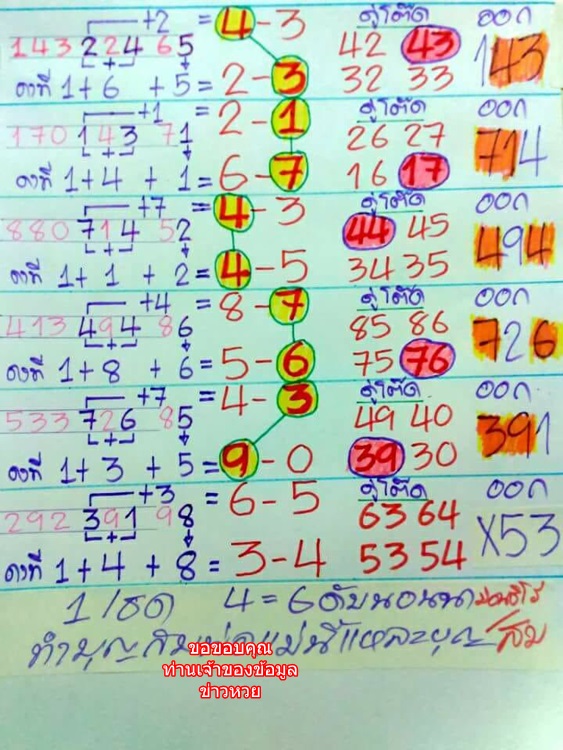 +2 = 4-3 คู่โต๊ด ออก
143 224 65 42 43 143
คงที่ 1+6 +5 = 2-3 32 33
+1 = 2-1 คู่โต๊ด ออก
170 143 71 26 27 714
คงที่ 1+4 + 1 = 6-7 16 17
+7 = 4-3 คู่โต๊ด ออก
880 714 52 44 45 494
คงที่ 1+ 1 +2 = 4-5 34 35
+4 = 8-7 คู่โต๊ด ออก
413 494 86 85 86 726
คงที่ 1+8 + 6 = 5-6 75 76
+7 = 4-3 คู่โต๊ด ออก
533 726 85 49 40 391
คงที่ 1+3 +5 = 9-0 39 30
+3 = 6-5 คู่โต๊ด ออก
292 391 98 63 64 X53
คงที่ 1+4 +8 = 3-4 53 54
1/ธค 4 = 6
ขอขอบคุณ
ท่านเจ้าของข้อมูล
ข่าวหวย